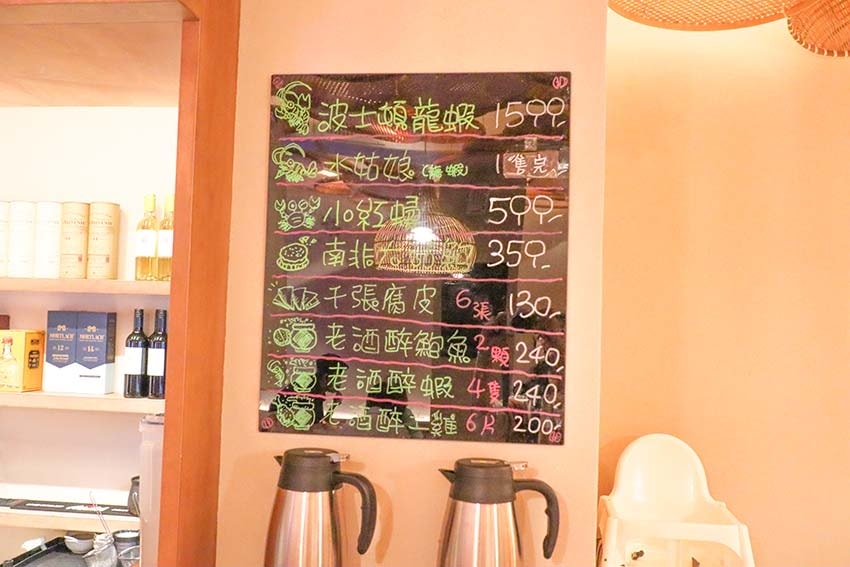 波士頓龍蝦 1500.-
水姑娘(龍蝦) 1 售完
小紅蟳 500.-
南非 350.-
千張腐皮 6張 130.-
老酒醉鮑魚 2顆 240.-
老酒醉蝦 4隻 240.-
老酒醉土雞 6片 200.-
MORTLACH
12
MORTLACH
14